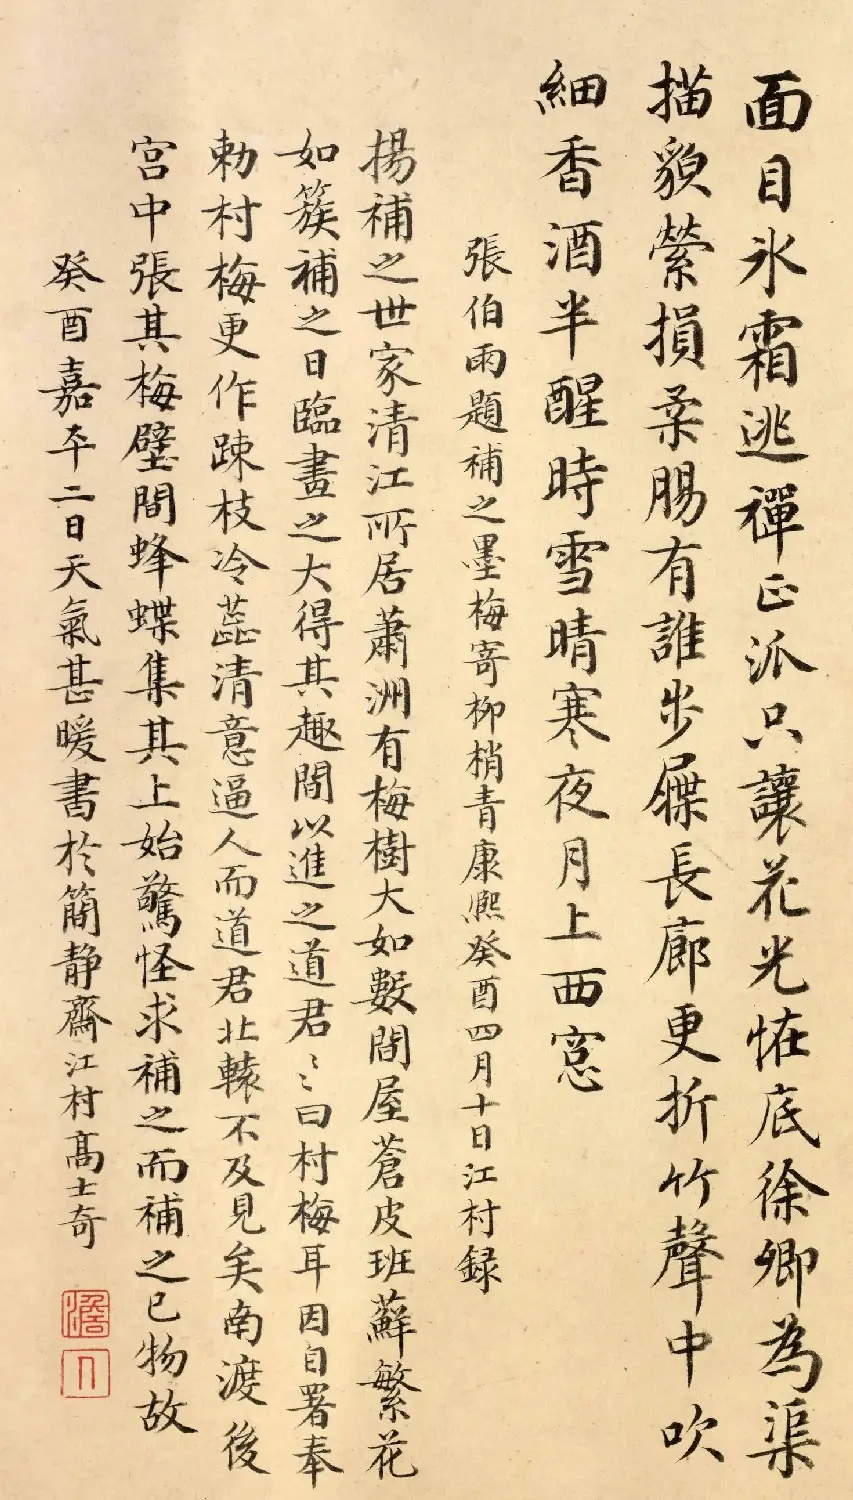 面目氷霜逃禪正派只讓花光恠底徐卿為渠
描貌縈損柔腸有誰步屧長廊更折竹聲中吹
細香酒半醒時雪晴寒夜月上西窓
張伯雨題補之墨梅寄柳梢青康熈癸酉四月十日江村録
揚補之世家清江所居蕭洲有梅樹大如數間屋蒼皮班蘚繁花
如簇補之日臨畫之大得其趣間以進之道君〻曰村梅耳因自署奉
勅村梅更作踈枝冷蕋清意逼人而道君北轅不及見矣南渡後
宫中張其梅壁間蜂蝶集其上始驚怪求補之而補之已物故
癸酉嘉平二日天氣甚暖書於簡静齋江村高士奇
澹人